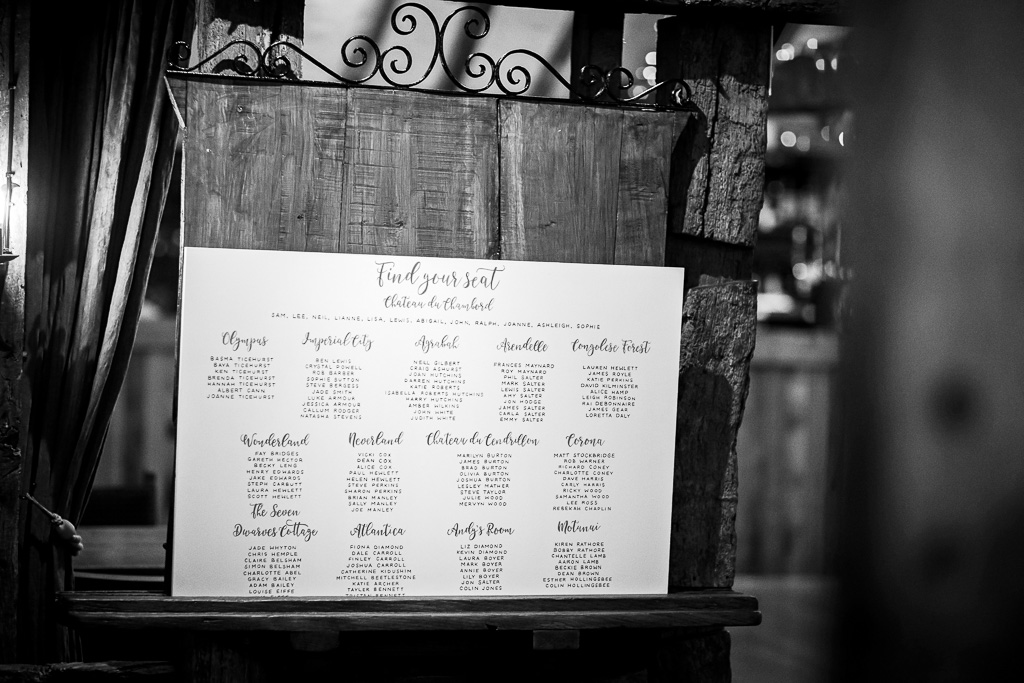 Find your seat
Chateau du Chambord
SAM, LEE, NEIL, LIANNE, LISA, LEWIS, ABIGAIL, JOHN, RALPH, JOANNE, ASHLEIGH, SOPHIE
Olympus
BASHA TICEHURST
BAYA TICEHURST
KEN TICEHURST
BRENDA TICEHURST
HANNAH TICEHURST
ALBERT CANN
JOANNE TICEHURST
Imperial City
REN LEWIS
CRYSTAL POWELL
ROB BARBER
SOPHIE SUTTON
STEVE BERGESS
JADE SMITH
LUKE ARMOUR
JESSICA ARMOUR
CALLUM RODGER
NATASHA STEVENS
Agrabah
NEILL GILBERT
CRAIG ASHURST
JOAN HUTCHINS
DARREN HUTCHINS
KATIE ROBERTS
ISABELLA ROBERTS HUTCHINS
HARRY HUTCHINS
AMBER WILKINS
JOHN WHITE
JUDITH WHITE
Arendelle
FRANCES MAYNARD
ROY MAYNARD
PHIL SALTER
MARK SALTER
LEWIS SALTER
AMY SALTER
JON HODGE
JAMES SALTER
CARLA SALTER
EMMY SALTER
Congolese Forest
LAUREN HEWLETT
JAMES ROYLE
KATIE PERKINS
DAVID KILMINSTER
ALICE HAMP
LEIGH ROBINSON
RAI DEBONNAIRE
JAMES GEAR
LORETTA DALY
Wonderland
FAY BRIDGES
GARETH HECTOR
BECKY LENG
HENRY EDWARDS
JAKE EDWARDS
STEPH CARBUTT
LAURA HEWLETT
SCOTT HEWLETT
Neverland
VICKI COX
DEAN COX
ALICE COX
PAUL HEWLETT
HELEN HEWLETT
STEVE PERKINS
SHARON PERKINS
BRIAN MANLEY
SALLY MANLEY
JOE MANLEY
Chateau du Cendrillon
MARILYN BURTON
JAMES BURTON
BRAD BURTON
OLIVIA BURTON
JOSHUA BURTON
LESLEY MATHER
STEVE TAYLOR
JULIE WOOD
MERVYN WOOD
Corona
MATT STOCKBRIDGE
ROB WARNER
RICHARD CONEY
CHARLOTTE CONEY
DAVE HARRIS
CARLY HARRIS
RICKY WOOD
SAMANTHA WOOD
LEE ROSS
REBEKAH CHAPLIN
The Seven
Dwarves Cottage
JADE WHYTON
CHRIS HEMPLE
CLAIRE BELSHAM
SIMON BELSHAM
CHARLOTTE ABEL
GRACY BAILEY
ADAM BAILEY
LOUISE EIFFE
Atlantica
FIONA DIAMOND
DALE CARROLL
FINLEY CARROLL
JOSHUA CARROLL
CATHERINE KIDUSHIM
MITCHELL BEETLESTONE
KATIE ARCHER
TAYLER BENNETT
TRYSTAN BENNETT
Andy's Room
LIZ DIAMOND
KEVIN DIAMOND
LAURA BOYER
MARK BOYER
ANNIE BOYER
LILY BOYER
JON SALTER
COLIN JONES
Motunui
KIREN RATHORE
BOBBY RATHORE
CHANTELLE LAMB
AARON LAMB
BECKIE BROWN
DEAN BROWN
ESTHER HOLLINGSBEE
COLIN HOLLINGSBEE